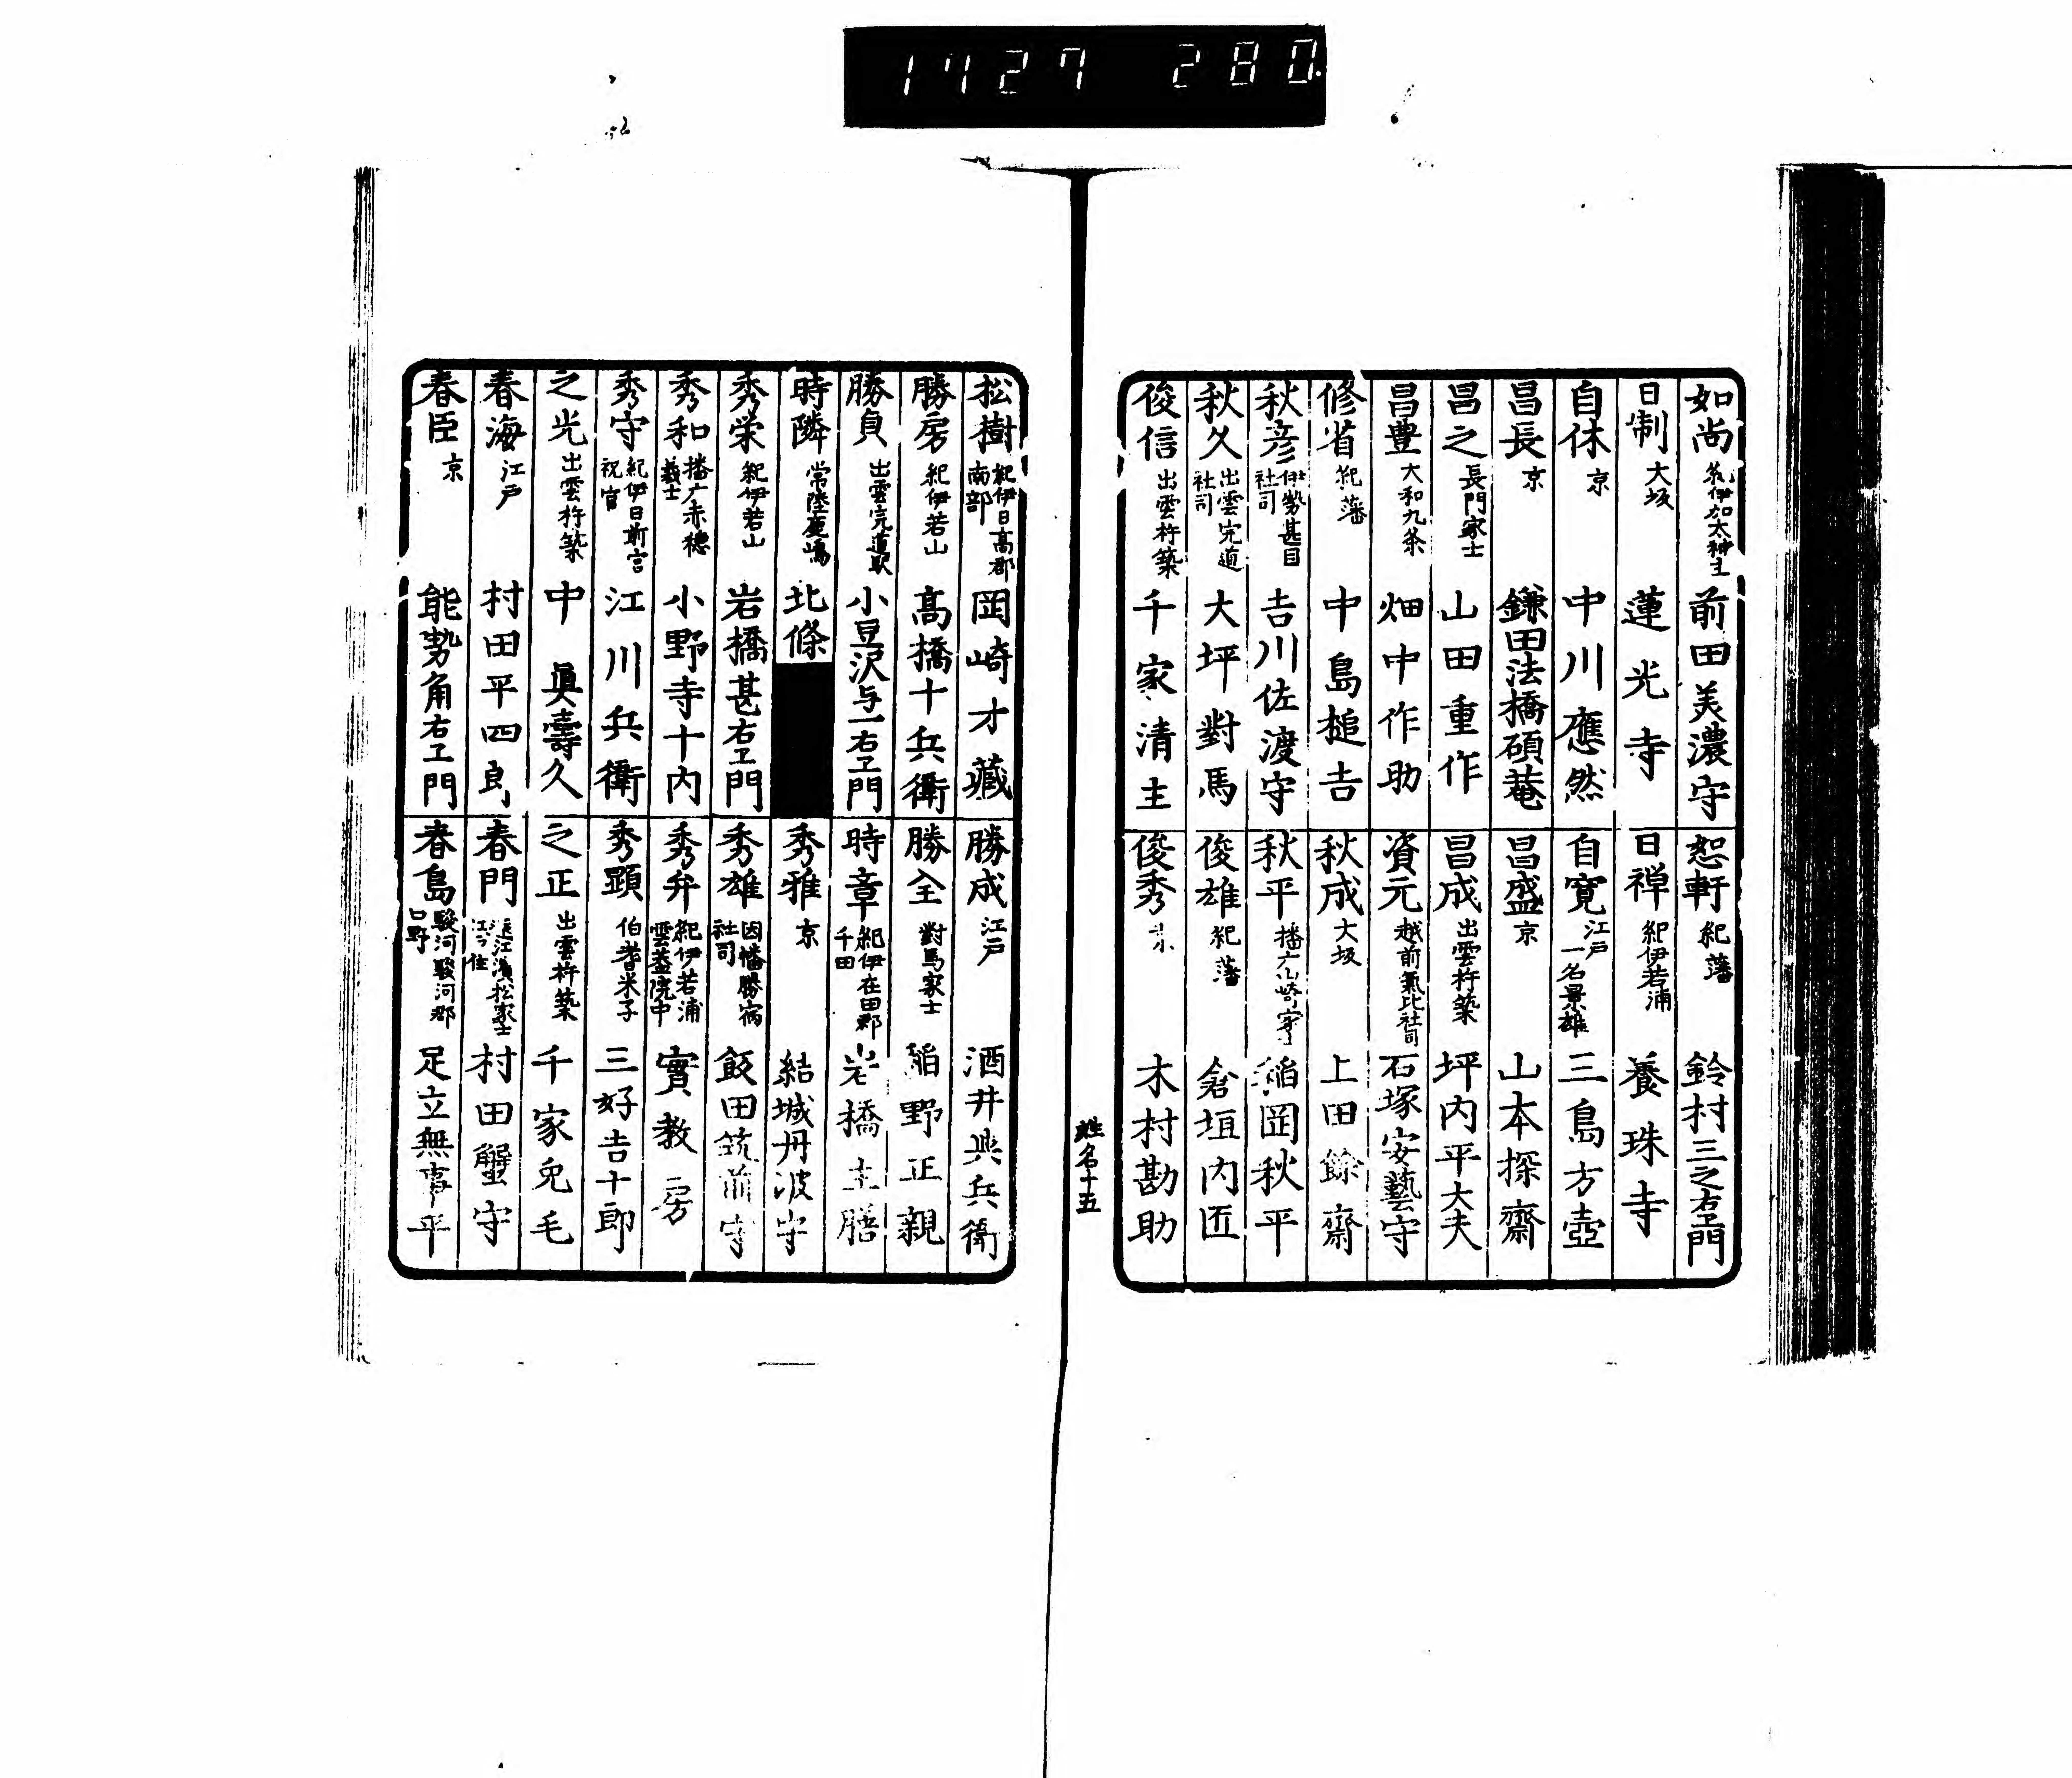 1427 280.
如尚 紀伊加太神主 前田美濃守
日制 大坂 蓮光寺
自休 京 中川應然
昌長 京 鎌田法橋碩菴
昌之 長門家士 山田重作
昌豊 大和九条 畑中作助
修省 紀藩 中島槌吉
秋彦 伊勢甚目社司 吉川佐渡守
秋久 出雲完道社司 大坪對馬
俊信 出雲杵築 千家清主
恕軒 紀藩 鈴村三之右エ門
日禅 紀伊若浦 養珠寺
自寛 江戸一名景雄 三島方壺
昌盛 京 山本探齋
昌成 出雲杵築 坪内平大夫
資元 越前氣比社司 石塚安藝守
秋成 大坂 上田餘齋
秋平 播广山崎 稲岡秋平
俊雄 紀藩 倉垣内匠
俊秀 木村勘助
姓名十五
松樹 紀伊日高郡南部 岡崎才藏
勝房 紀伊若山 高橋十兵衛
勝負 出雲完道駅 小豆沢与一右エ門
時隣 常陸鹿嶋 北條
秀栄 紀伊若山 岩橋甚右エ門
秀和 播广赤穂義士 小野寺十内
秀守 紀伊日前宮祝官 江川兵衛
之光 出雲杵築 中眞壽久
春海 江戸 村田平四郎
春臣 京 能勢角右エ門
勝成 江戸 酒井與兵衛
勝全 對馬家士 稲野正親
時章 紀伊在田郡千田 岩橋主膳
秀雅 京 結城丹波守
秀雄 因幡勝宿社司 飯田筑前守
秀弁 紀伊若浦雲蓋院中 實教房
秀顕 伯耆米子 三好吉十郎
之正 出雲杵築 千家免毛
春門 遠江濱松家士江戸住 村田蟹守
春島 駿河駿河郡口野 足立無事平